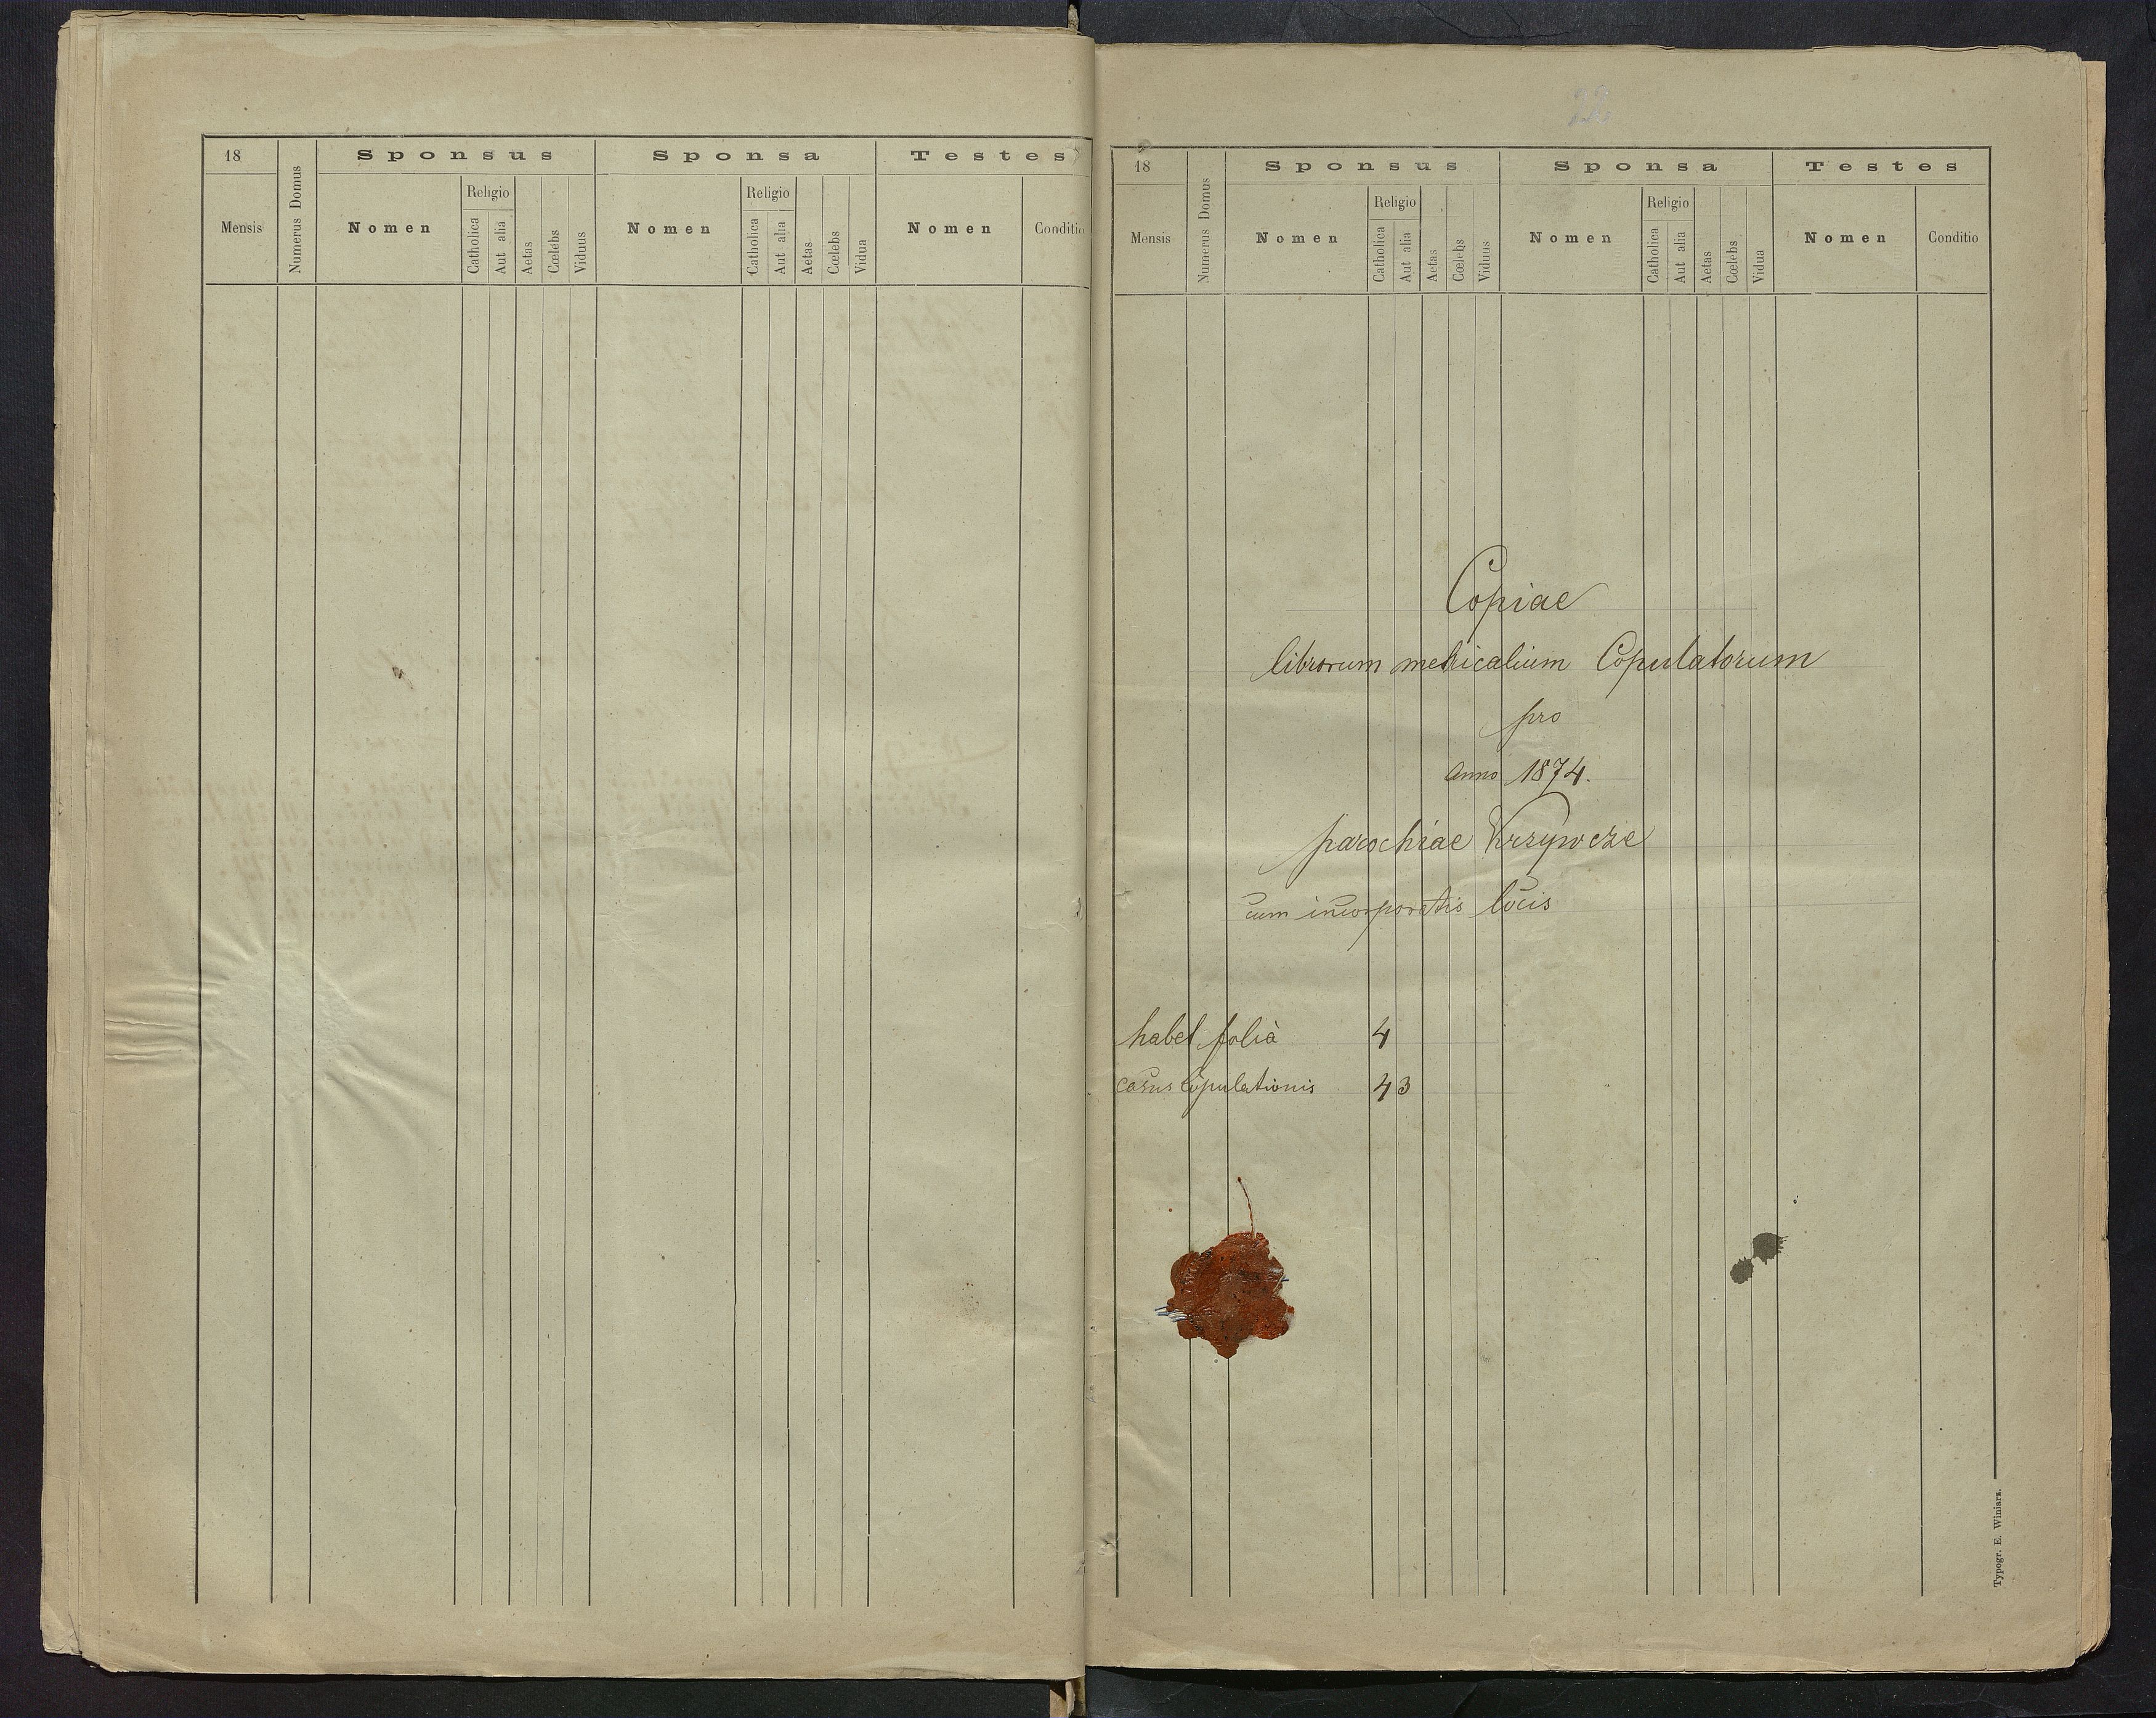 18
Mensis
Numerus Domus
Sponsus
Nomen
Religio
Catholica
Aut alia
Aetas
Cœlebs
Viduus
Sponsa
Nomen
Religio
Catholica
Aut alia
Aetas
Cœlebs
Vidua
Testes
Nomen
Conditio
22
18
Mensis
Numerus Domus
Sponsus
Nomen
Religio
Catholica
Aut alia
Aetas
Cœlebs
Viduus
Sponsa
Nomen
Religio
Catholica
Aut alia
Aetas
Cœlebs
Vidua
Testes
Nomen
Conditio
Copiae
librorum metricalium Copulatorum
pro
anno 1874.
parochiae Krzywcze
cum incorporatis locis
habet folia 4
casus copulationis 43
Typogr. E. Winiarz.